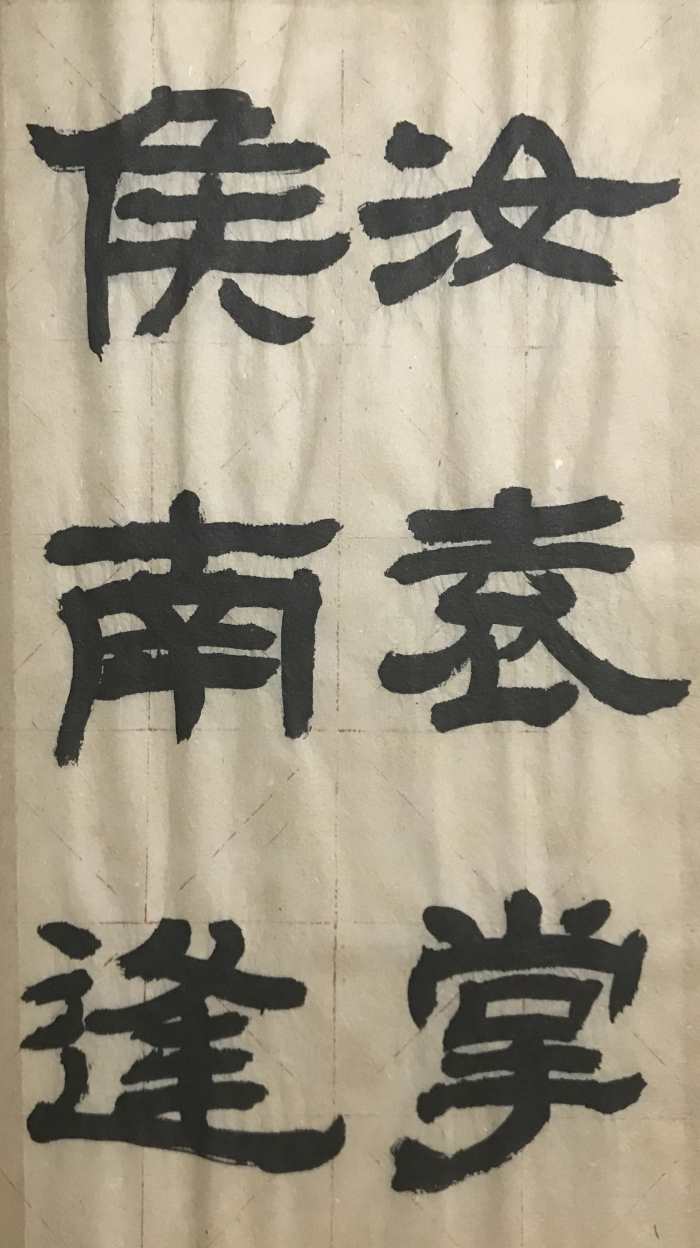 侯汝
南袁
逢掌